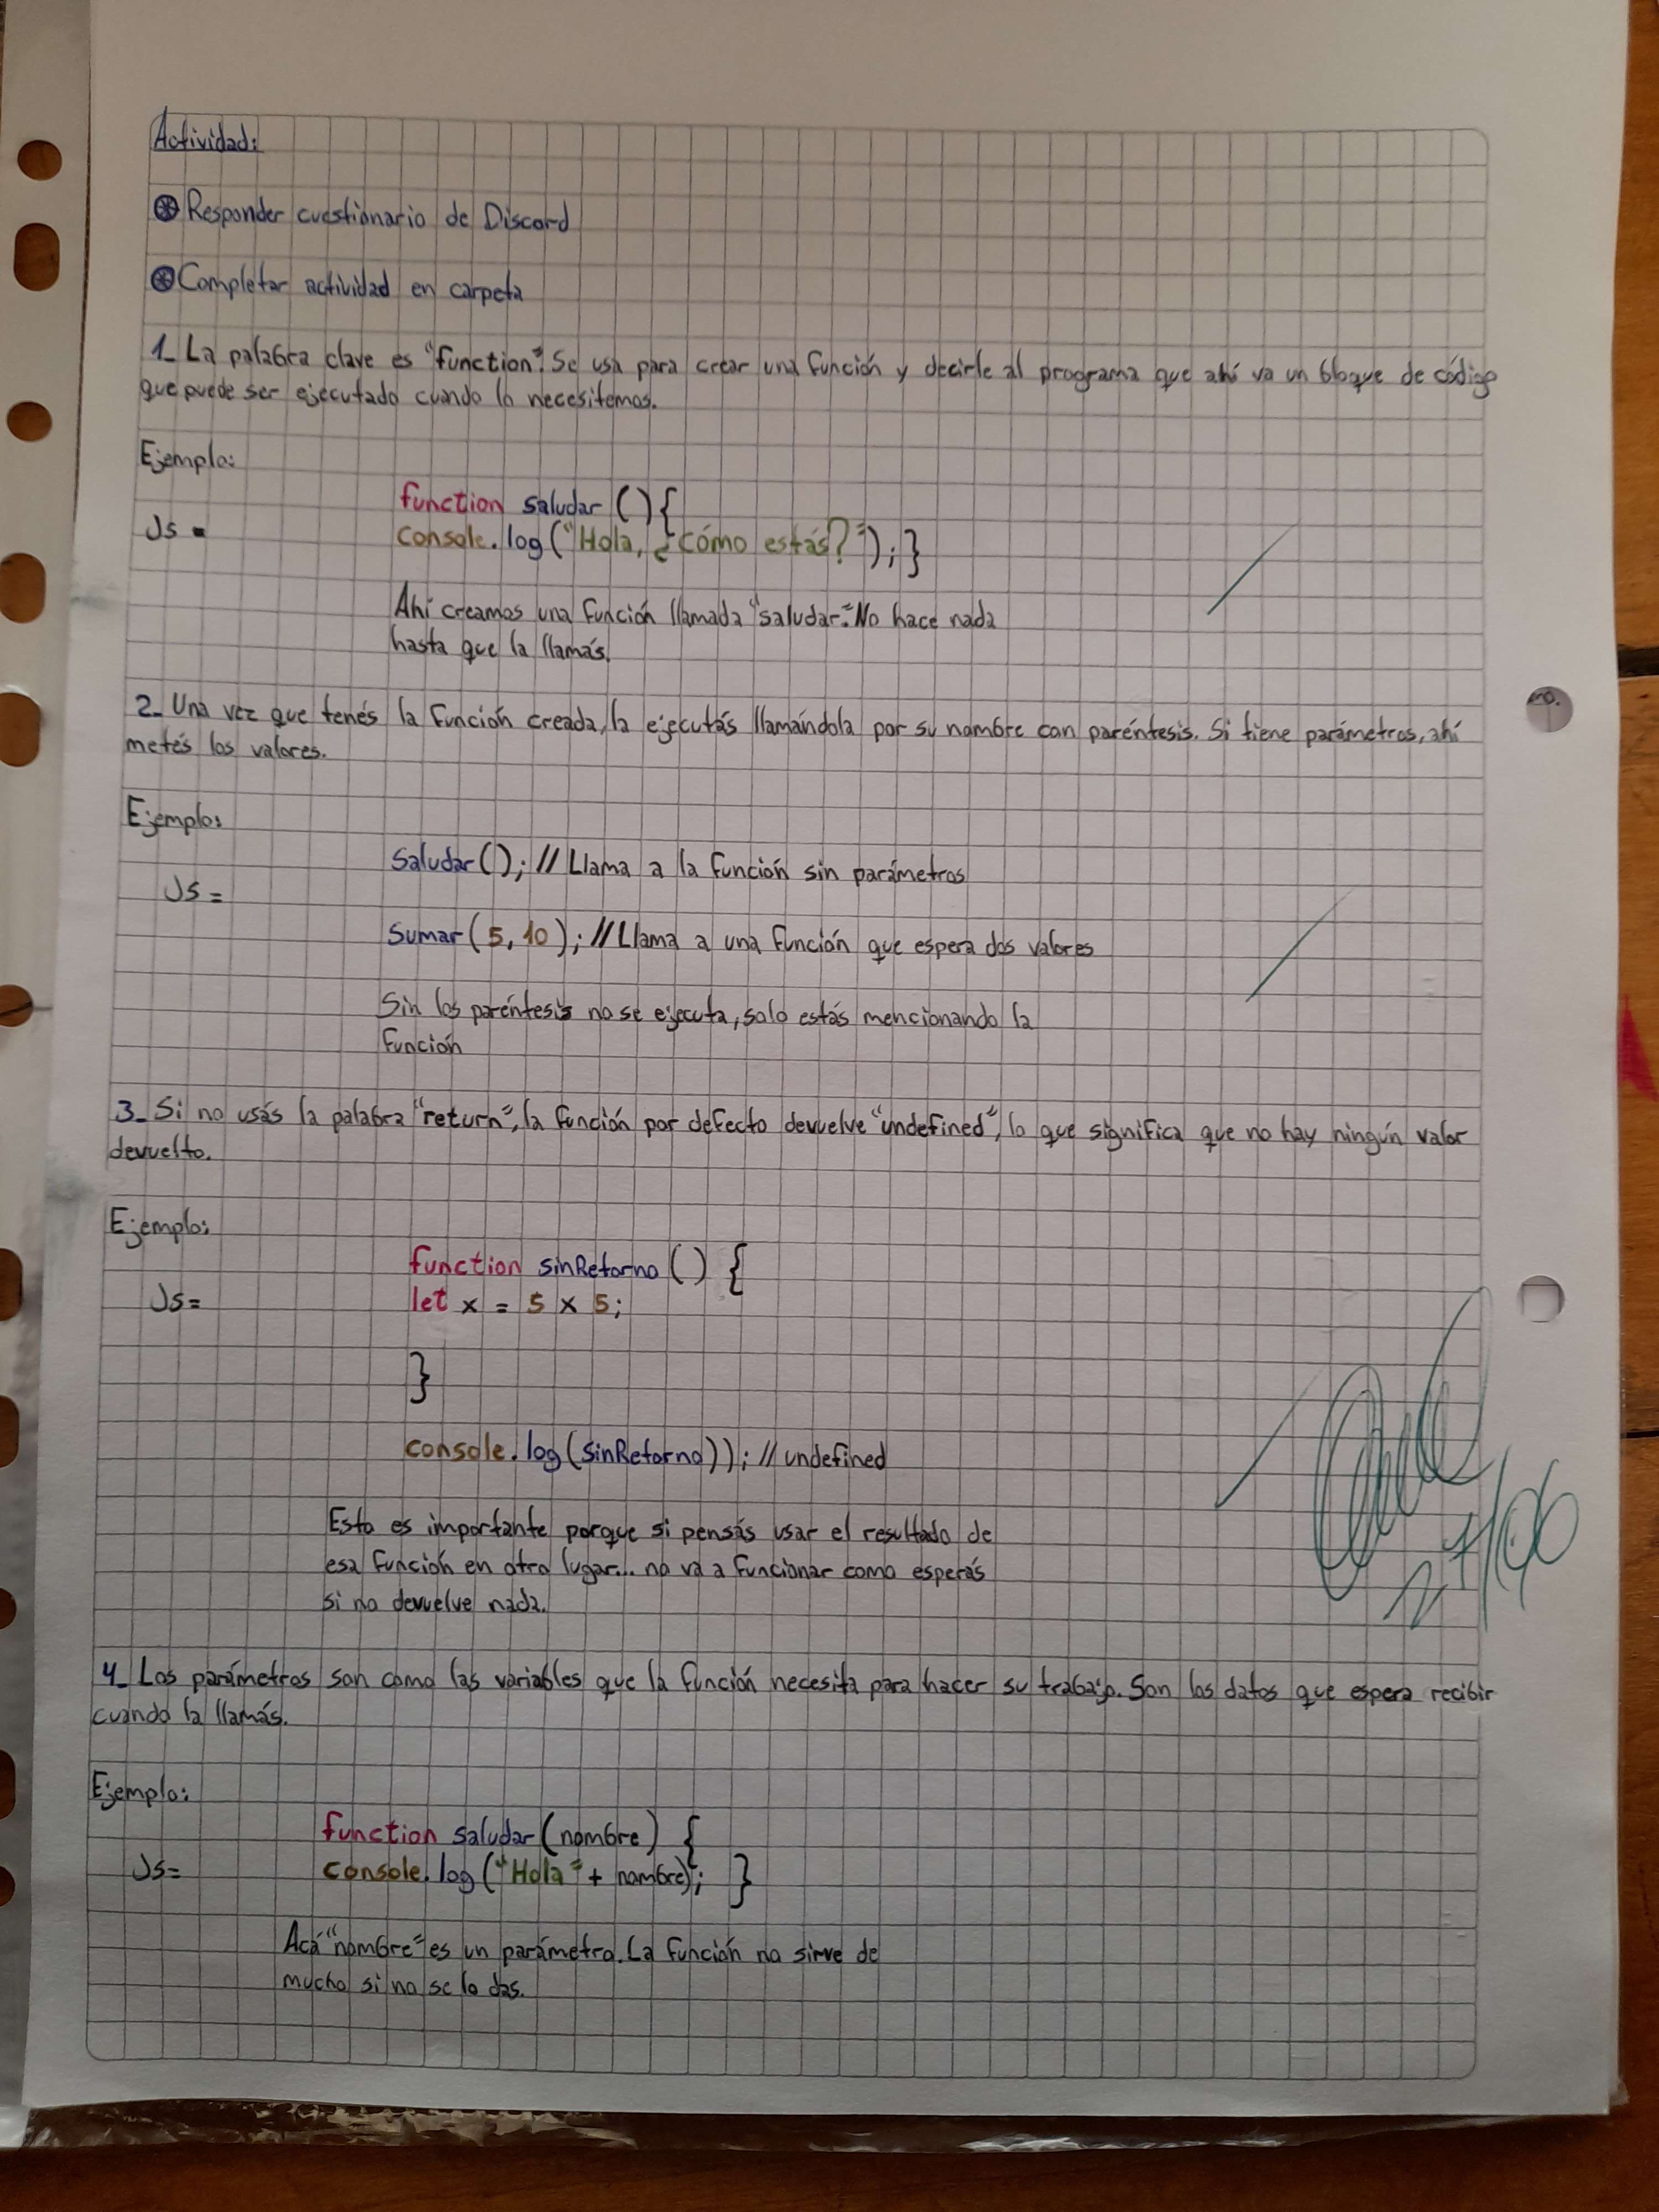 Actividad:
Responder cuestionario de Discord
Completar actividad en carpeta
1_ La palabra clave es "function". Se usa para crear una función y decirle al programa que ahí va un bloque de código
que puede ser ejecutado cuando lo necesitemos.
Ejemplo:
Js = function saludar () {
console.log("Hola, ¿cómo estás?"); }
Ahí creamos una función llamada "saludar". No hace nada
hasta que la llamás.
2_ Una vez que tenés la función creada, la ejecutás llamándola por su nombre con paréntesis. Si tiene parámetros, ahí
metés los valores.
Ejemplo:
Saludar(); // Llama a la función sin parámetros
Js =
Sumar (5, 10); // Llama a una función que espera dos valores
Sin los paréntesis no se ejecuta, solo estás mencionando la
función
3_ Si no usás la palabra "return", la función por defecto devuelve "undefined", lo que significa que no hay ningún valor
devuelto.
Ejemplo:
function sinRetorno () {
Js= let x = 5 x 5;
}
console.log(sinRetorno)); // undefined
Esto es importante porque si pensás usar el resultado de
esa función en otro lugar... no va a funcionar como esperás
si no devuelve nada.
27/06
4_ Los parámetros son como las variables que la función necesita para hacer su trabajo. Son los datos que espera recibir
cuando la llamás.
Ejemplo:
function saludar (nombre) {
Js= console.log ("Hola" + nombre); }
Acá "nombre" es un parámetro. La función no sirve de
mucho si no se lo das.